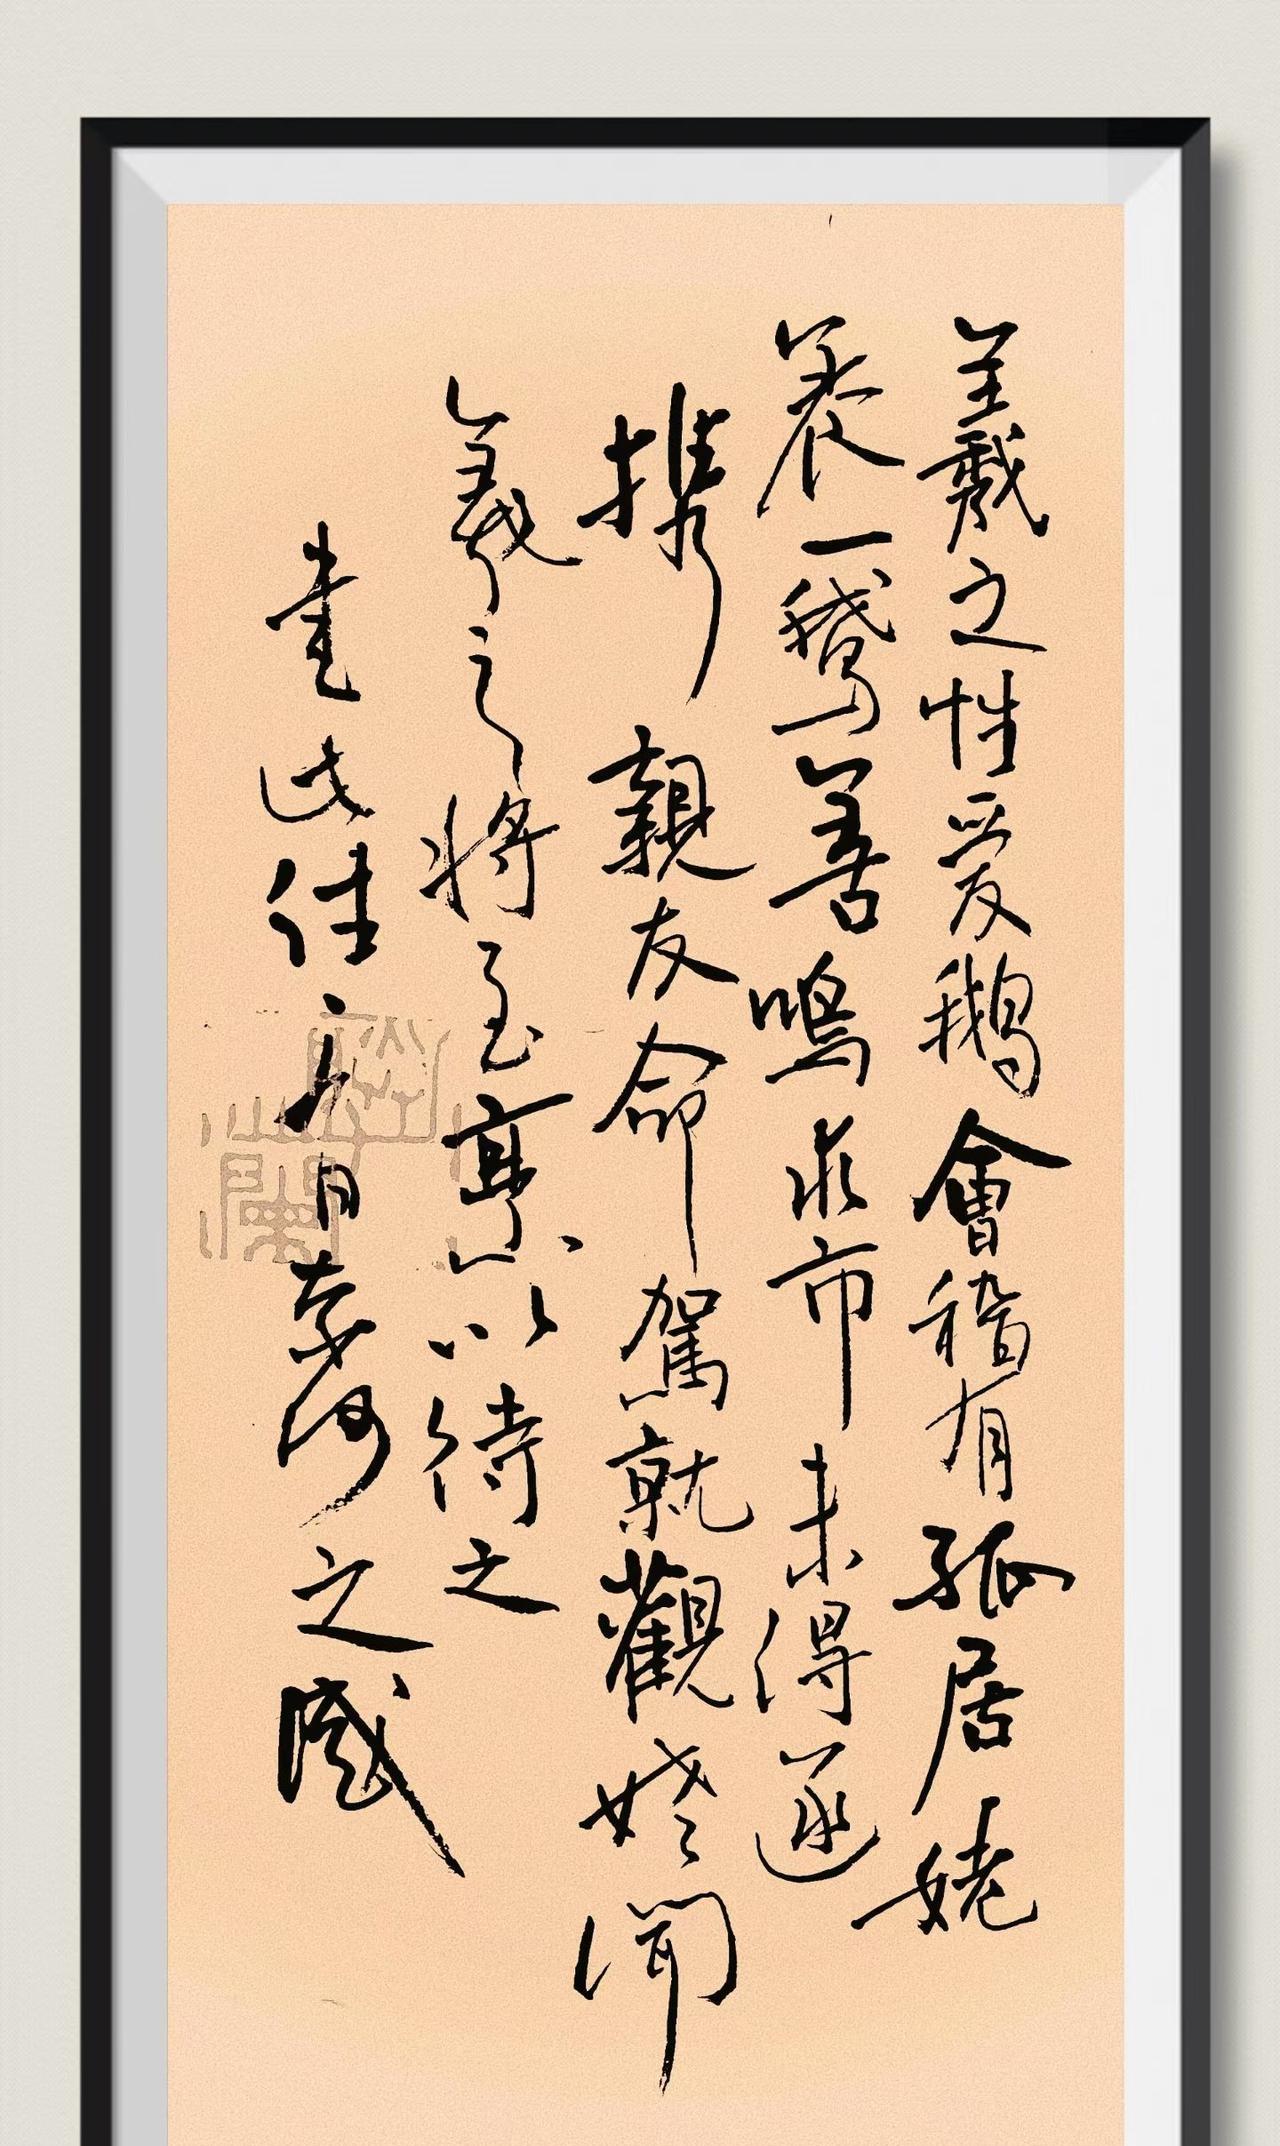 羲之性爱鹅會稽有孤居姥
养一鹅善鳴求市未得遂
携親友命駕就觀姥聞
羲之将至烹以待之
書此佳
之感